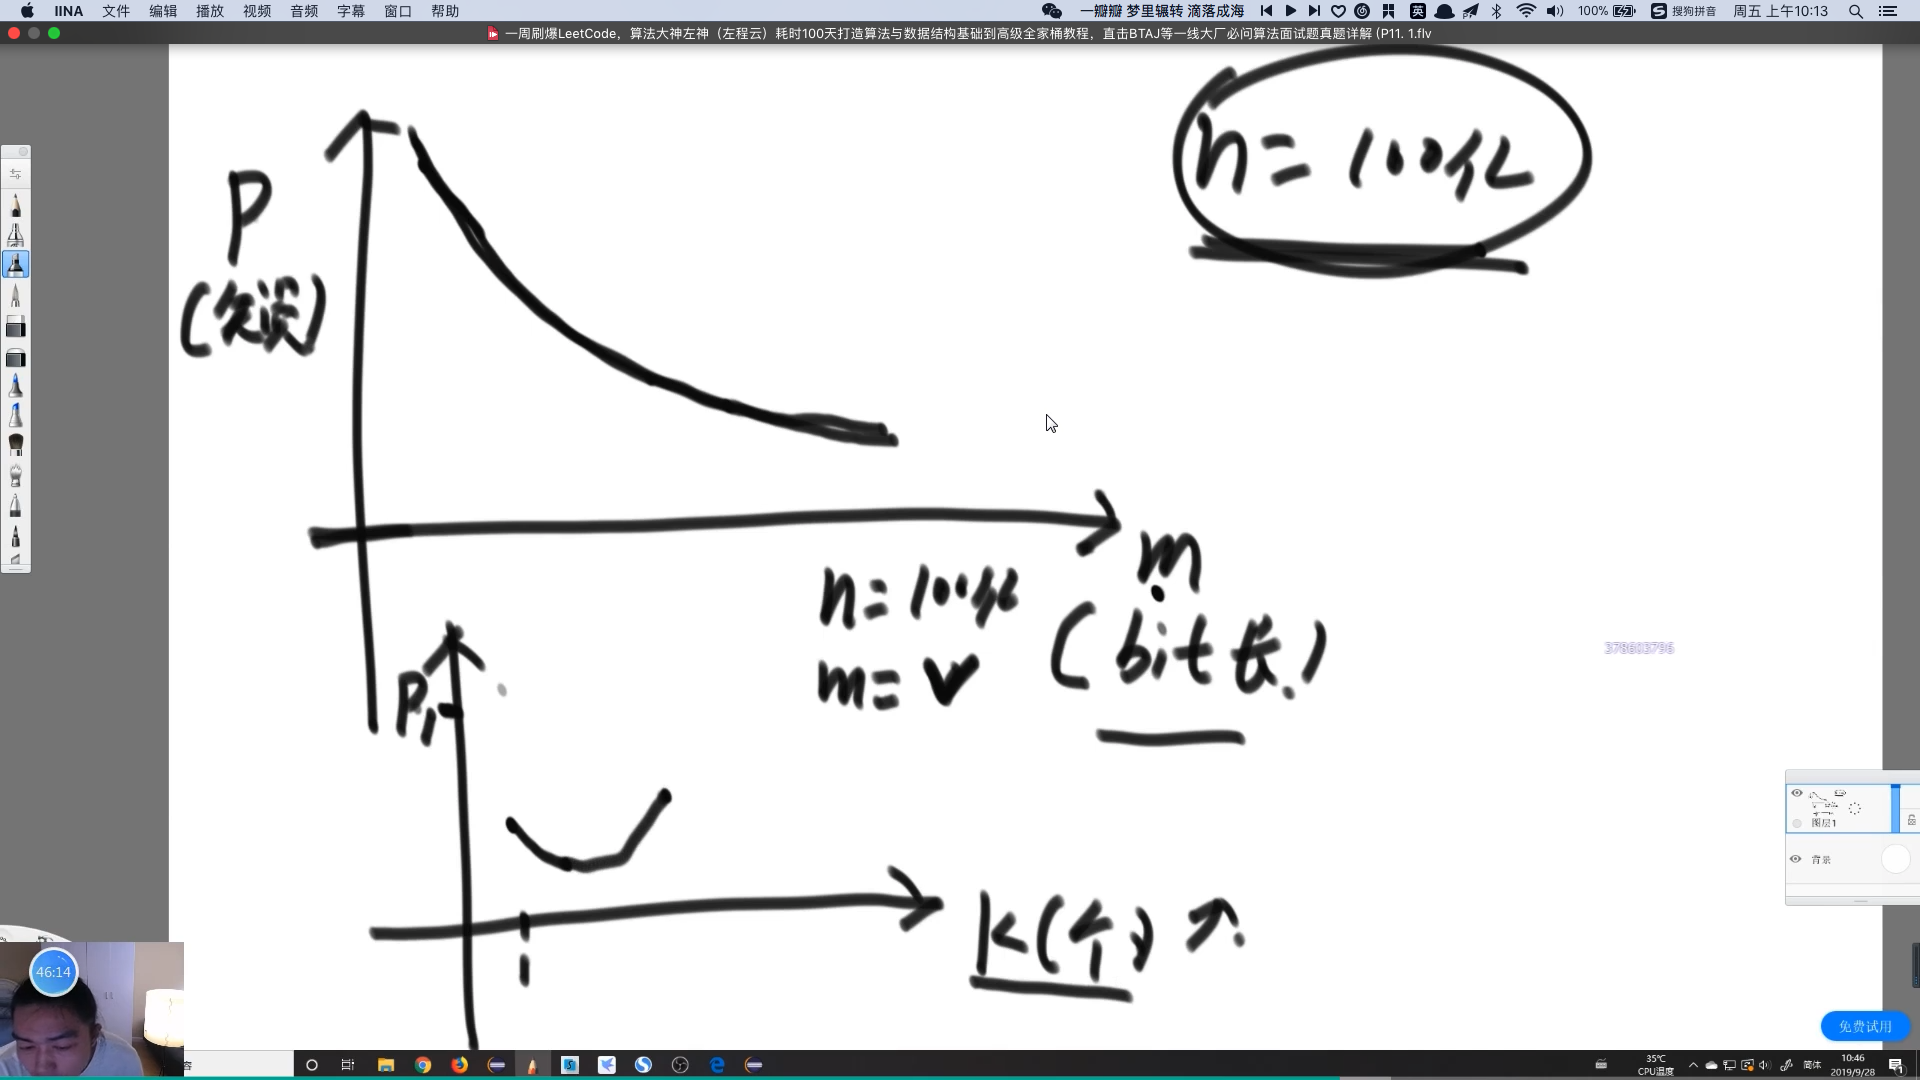 IINA 文件 编辑 播放 视频 音频 字幕 窗口 帮助 一瓣瓣 梦里辗转 滴落成海 英 100% S 搜狗拼音 周五 上午10:13
一周刷爆LeetCode，算法大神左神（左程云）耗时100天打造算法与数据结构基础到高级全家桶教程，直击BTAJ等一线大厂必问算法面试题真题详解 (P11. 1.flv
n= 100亿
P
(失误)
m
n= 100亿
(bit长)
m= ✓
378603796
P1
图层1
背景
K(个)
1
46:14
免费试用
容
35℃
CPU温度
简体
10:46
2019/9/28